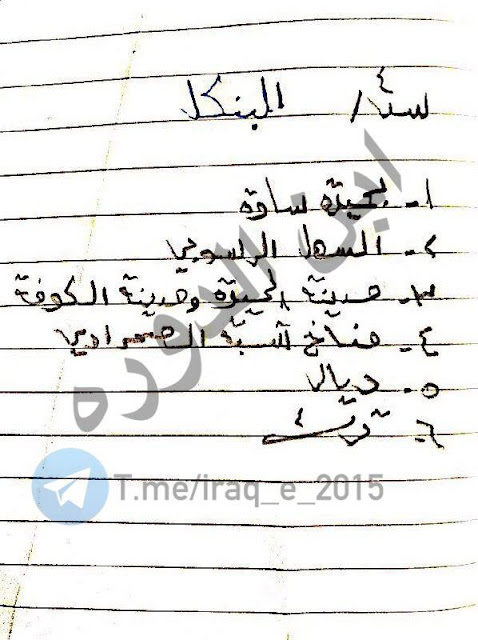 س٤/ البنكل
١- بحيرة ساوة
٢- السهل الرسوبي
٣- مدينة الحيرة ومدينة الكوفة
٤- مناخ شبة الصحراوي
٥- ديالى
٦-
ابن الدوره
T.me/iraq_e_2015